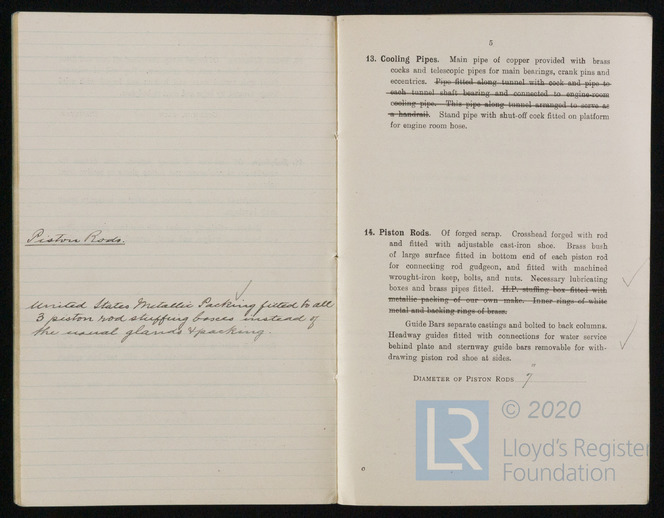 Piston Rods.
United States Metallic Packing fitted to all
3 piston rod stuffing boxes instead of
the usual glands & packing.
5
13. Cooling Pipes. Main pipe of copper provided with brass
cocks and telescopic pipes for main bearings, crank pins and
eccentrics. Pipe fitted along tunnel with cock and pipe to
each tunnel shaft bearing and connected to engine-room
cooling pipe. This pipe along tunnel arranged to serve as
a handrail. Stand pipe with shut-off cock fitted on platform
for engine room hose.
14. Piston Rods. Of forged scrap. Crosshead forged with rod
and fitted with adjustable cast-iron shoe. Brass bush
of large surface fitted in bottom end of each piston rod
for connecting rod gudgeon, and fitted with machined
wrought-iron keep, bolts, and nuts. Necessary lubricating
boxes and brass pipes fitted. H.P. stuffing box fitted with
metallic packing of our own make. Inner rings of white
metal and backing rings of brass.
Guide Bars separate castings and bolted to back columns.
Headway guides fitted with connections for water service
behind plate and sternway guide bars removable for with-
drawing piston rod shoe at sides.
DIAMETER OF PISTON RODS 7"
LR
© 2020
Lloyd's Register
Foundation